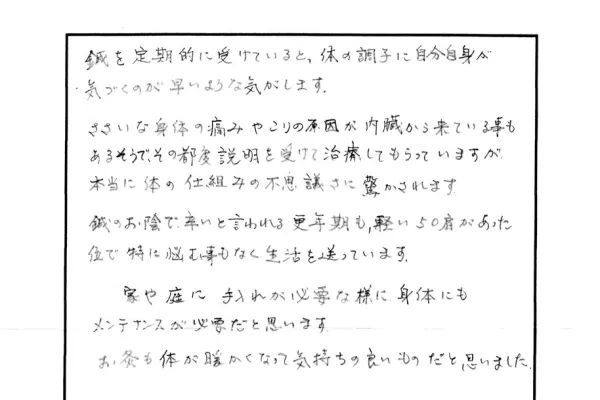 鍼を定期的に受けていると、体の調子に自分自身が
気づくのが早いような気がします。
ささいな身体の痛みやこりの原因が内臓から来ている事も
あるそうでその都度説明を受けて治療してもらっていますが
本当に体の仕組みの不思議さに驚かされます
鍼のお陰で辛いと言われる更年期も,軽い50肩があった
位で特に悩む事もなく生活を送っています。
家や庭に手入れが必要な様に身体にも
メンテナンスが必要だと思います
お灸も体が暖かくなって気持ちの良いものだと思いました.